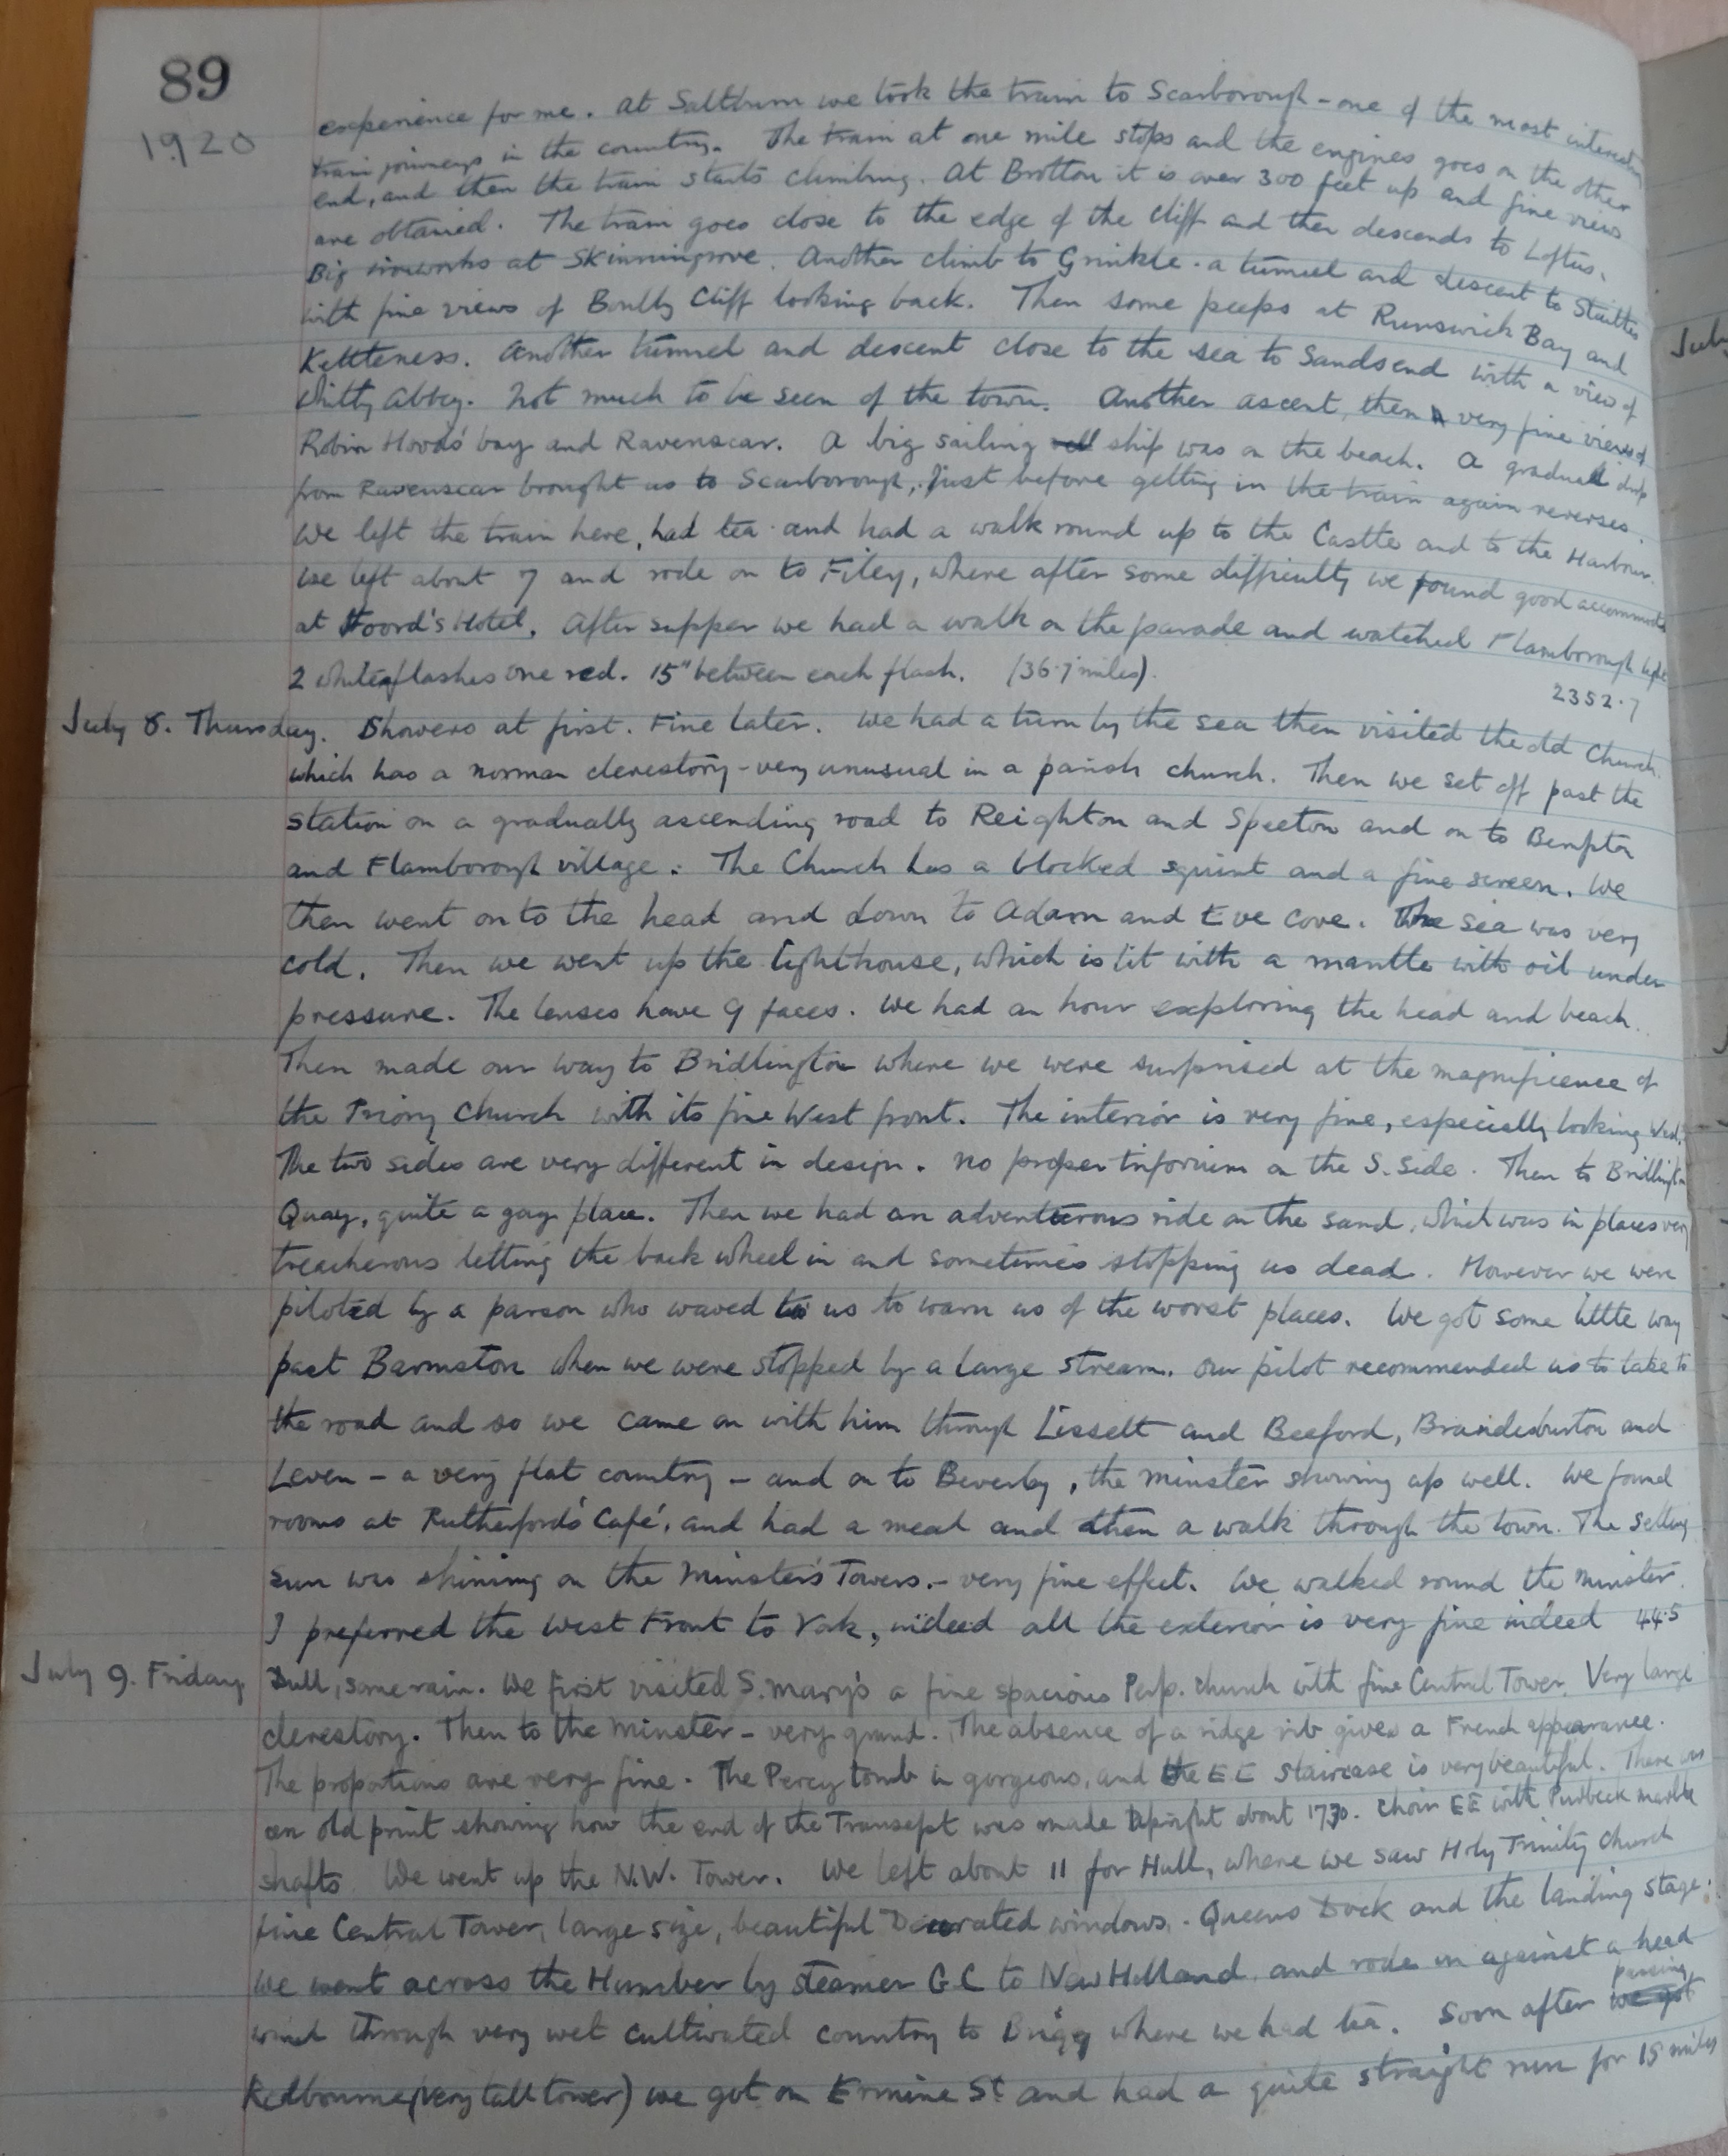 89
1920
experience for me. At Saltburn we took the train to Scarborough - one of the most interesting
train journeys in the country. The train at one mile stops and the engines goes on the other
end, and then the train starts climbing. At Brotton it is over 300 feet up and fine views
are obtained. The train goes close to the edge of the cliff and then descends to Loftus.
Big ironworks at Skinningrove. Another climb to Grinkle - a tunnel and descent to Staithes
with fine views of Boulby Cliff looking back. Then some peeps at Runswick Bay and
Kettleness. Another tunnel and descent close to the sea to Sandsend with a view of
Whitby Abbey. Not much to be seen of the town. Another ascent, then very fine views of
Robin Hoods' bay and Ravenscar. A big sailing ship was on the beach. A gradual drop
from Ravenscar brought us to Scarborough, just before getting in the train again reverses.
We left the train here, had tea and had a walk round up to the Castle and to the Harbour.
We left about 7 and rode on to Filey, where after some difficulty we found good accommoda
at Foord's Hotel. After supper we had a walk on the parade and watched Flamborough light
2 white flashes one red. 15" between each flash. (36.7 miles).
2352.7
July 8. Thursday. Showers at first. Fine later. We had a turn by the sea then visited the old Church.
which has a norman clerestory - very unusual in a parish church. Then we set off past the
station on a gradually ascending road to Reighton and Speeton and on to Bempton
and Flamborough village. The Church has a blocked squint and a fine screen. We
then went on to the head and down to Adam and Eve cove. The sea was very
cold. Then we went up the lighthouse, which is lit with a mantle with oil under
pressure. The lenses have 9 faces. We had an hour exploring the head and beach.
Then made our way to Bridlington where we were surprised at the magnificence of
the Priory Church with its fine West front. The interior is very fine, especially looking West.
The two sides are very different in design. No proper triforium on the S. Side. Then to Bridlington
Quay, quite a gay place. Then we had an adventurous ride on the sand, which was in places very
treacherous letting the back wheel in and sometimes stopping us dead. However we were
piloted by a parson who waved to us to warn us of the worst places. We got some little way
past Barmston when we were stopped by a large stream. Our pilot recommended us to take to
the road and so we came on with him through Lissett and Beeford, Brandesburton and
Leven - a very flat country - and on to Beverley, the minster showing up well. We found
rooms at Rutherford's Café, and had a meal and then a walk through the town. The setting
sun was shining on the Minster's Towers. - very fine effect. We walked round the minster.
I preferred the West Front to York, indeed all the exterior is very fine indeed 44.5
July 9. Friday. Dull, some rain. We first visited S. Mary's a fine spacious Perp. church with fine Central Tower. Very large
clerestory. Then to the Minster - very grand. The absence of a ridge rib gives a French appearance.
The proportions are very fine. The Percy tomb is gorgeous, and the EE staircase is very beautiful. There was
an old print showing how the end of the Transept was made upright about 1730. Choir EE with Purbeck marble
shafts. We went up the N.W. Tower. We left about 11 for Hull, where we saw Holy Trinity Church
fine Central Tower, large size, beautiful Decorated windows. Queens Dock and the landing stage.
We went across the Humber by steamer GC to New Holland, and rode on against a head
wind through very wet cultivated country to Brigg where we had tea. Soon after passing
Redbourne (very tall tower) we got on Ermine St. and had a quite straight run for 15 miles
July